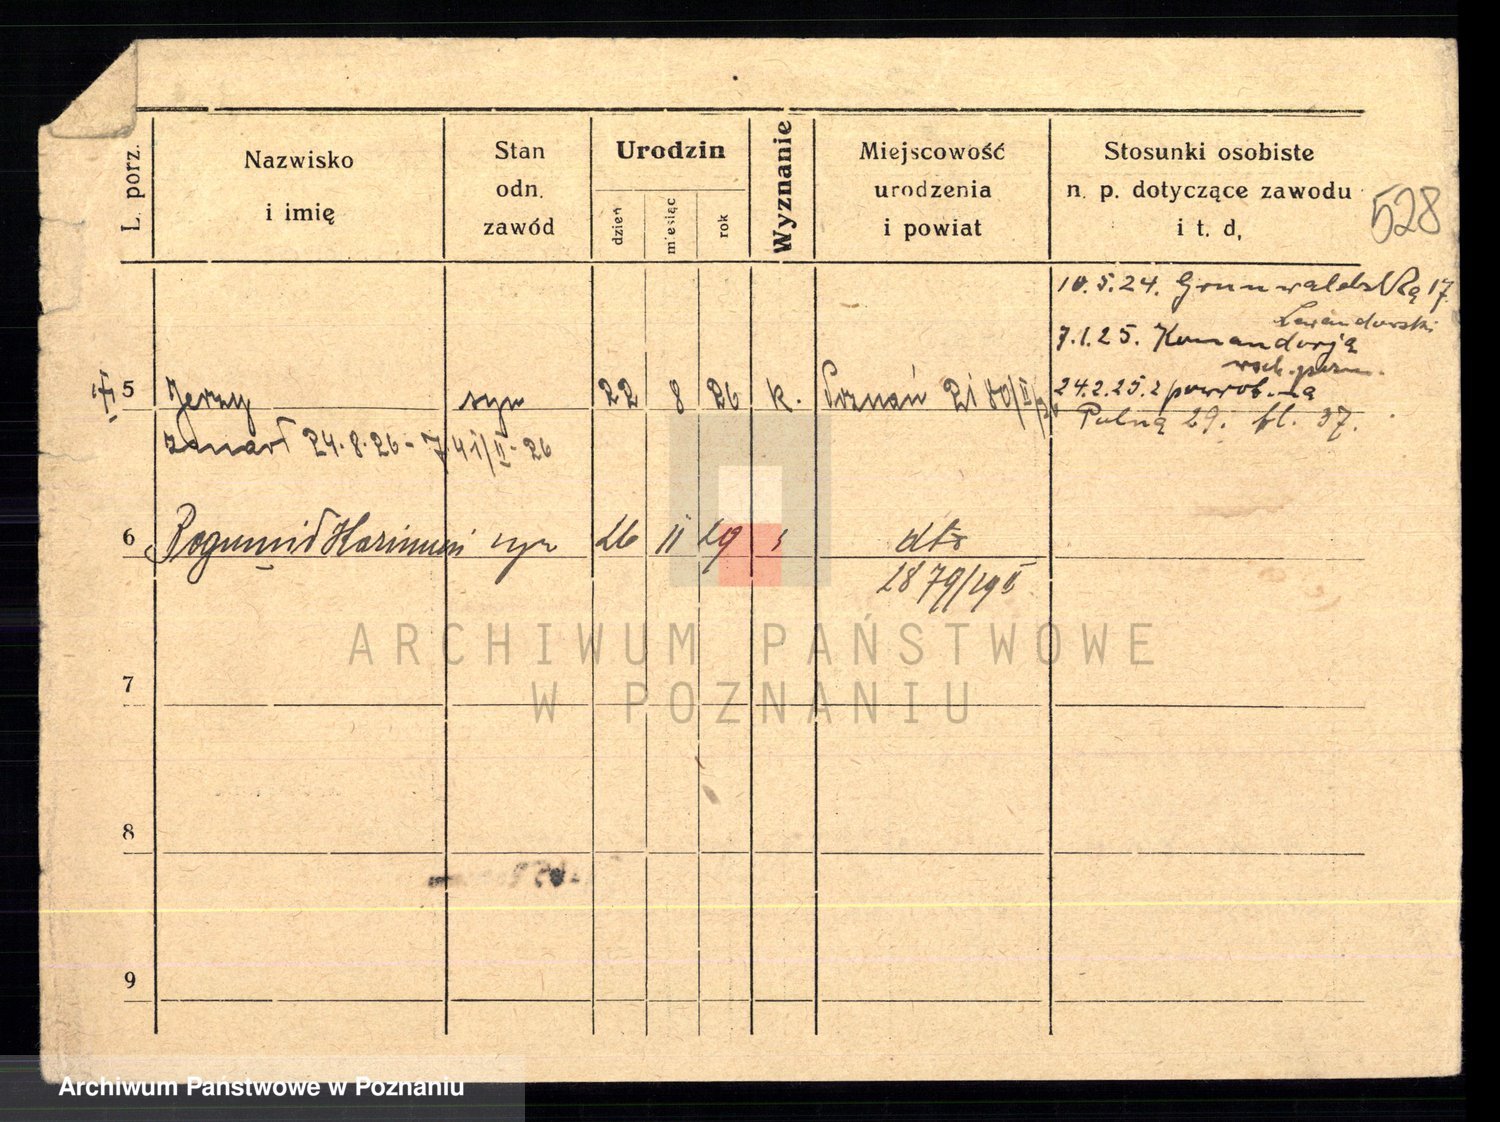 L. porz.
Nazwisko
i imię
Stan
odn.
zawód
Urodzin
dzień
miesiąc
rok
Wyznanie
Miejscowość
urodzenia
i powiat
Stosunki osobiste
n. p. dotyczące zawodu
i t. d,
528
10.5.24. Grunwaldzką 17
Lewandowski
7.1.25. Komandorją
24.2.25. z powrot.
Polną 29.
37.
5 Jerzy syn 22 8 26 k. Poznań 2180/II/26
zmarł 24.8.26 - 741/II-26
6 Bogumił Kazimierz syn 26 11 29 dto
2879/29 II
7
8
9
ARCHIWUM PAŃSTWOWE
W POZNANIU
Archiwum Państwowe w Poznaniu